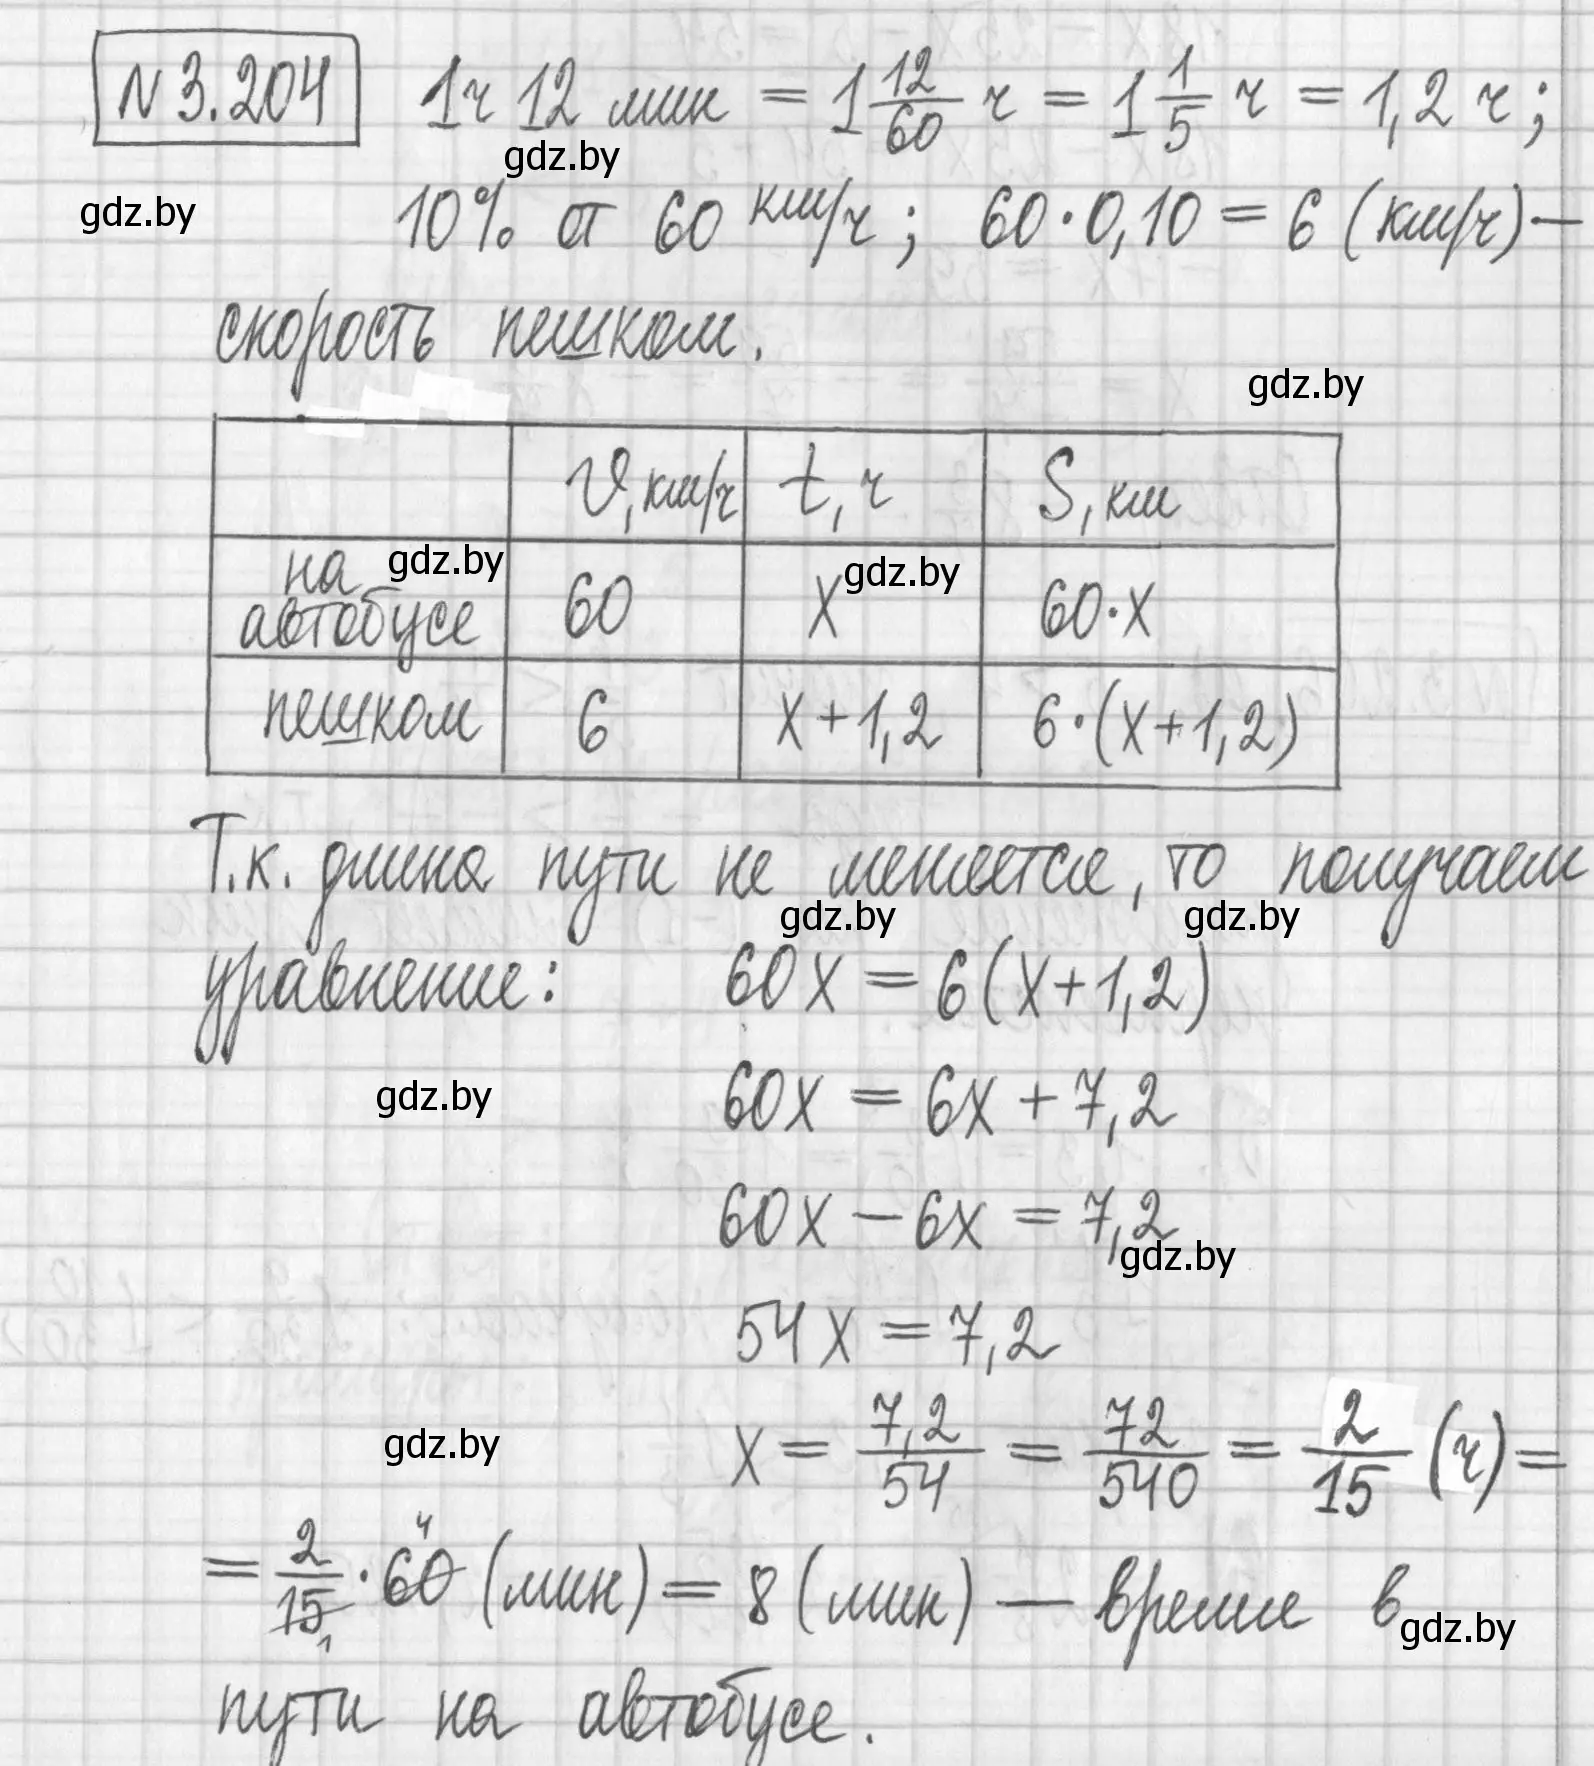 N 3.204 1ч 12 мин = 1 12/60 ч = 1 1/5 ч = 1,2 ч;
gdz.by
gdz.by
10% от 60 км/ч; 60·0,10 = 6 (км/ч) —
скорость пешком.
gdz.by
v, км/ч t, ч S, км
gdz.by gdz.by
на автобусе 60 x 60·x
пешком 6 x+1,2 6·(x+1,2)
Т.к. длина пути не меняется, то получаем
gdz.by gdz.by
уравнение: 60x = 6(x+1,2)
gdz.by
60x = 6x + 7,2
60x − 6x = 7,2
gdz.by
54x = 7,2
gdz.by
x = 7,2/54 = 72/540 = 2/15 (ч) =
= 2/15 1 · 60 4 (мин) = 8 (мин) — время в
gdz.by
пути на автобусе.